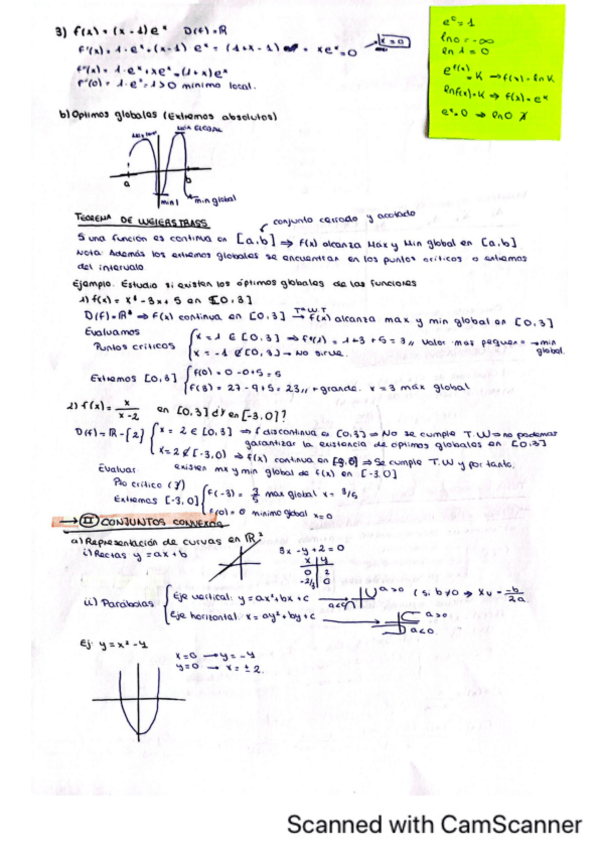 3) f(x) = (x-1)e^x   D(f)=R
f'(x) = 1·e^x+(x-1)e^x = (1+x-1)e^x = xe^x=0 → x=0
f''(x) = 1·e^x+xe^x=(1+x)e^x
f''(0) = 1·e^0=1>0 minimo local.
e^0=1
ln0=-∞
ln1=0
e^f(x)=K → f(x)=lnK
lnf(x)=K → f(x)=e^K
e^x=0 → ln0 ∄
b) Optimos globales (Extremos absolutos)
a
b
min l
min global
TEOREMA DE WEIERSTRASS
conjunto cerrado y acotado
S una función es continua en [a,b] ⇒ f(x) alcanza Max y Min global en [a,b]
Nota: Además los extremos globales se encuentran en los puntos críticos o extremos
del intervalo
Ejemplo. Estudia si existen los óptimos globales de las funciones
1) f(x) = x³-3x+5 en [0,3]
f(x) continua en [0,3] → f(x) alcanza max y min global en [0,3]
Evaluamos
Puntos críticos
x=1 ∈ [0,3] ⇒ f(1)=1-3+5=3,, Valor mas pequeño → min
global.
x=-1 ∉ [0,3] → No sirve.
Extremos [0,3]
f(0)=0-0+5=5
f(3)=27-9+5=23,, + grande. x=3 máx global
2) f(x)= x/x-2 en [0,3] d y en [-3,0]?
D(f)=R-{2}
x=2 ∈ [0,3] ⇒ f discontinua en [0,3] ⇒ No se cumple T.W ⇒ no podemos
garantizar la existencia de optimos globales en [0,3]
x=2 ∉ [-3,0] ⇒ f(x) continua en ⇒ Se cumple T.W y por tanto,
existen mx y min global de f(x) en [-3,0]
Evaluar
Pto crítico (∄)
Extremos [-3,0]
f(-3)= max global x= 3/5
f(0)=0 minimo global x=0
→ II CONJUNTOS CONVEXOS
a) Representación de curvas en R²
i) Rectas y=ax+b
3x-y+2=0
x y
0 2
-2/3 0
ii) Parábolas
Eje vertical: y=ax²+bx+c
a<0
a>0
(si b≠0 ⇒ Xv = -b/2a
Eje horizontal: x=ay²+by+c
a>0
a<0
Ej: y=x²-4
x=0 → y=-4
y=0 → x=±2.
Scanned with CamScanner